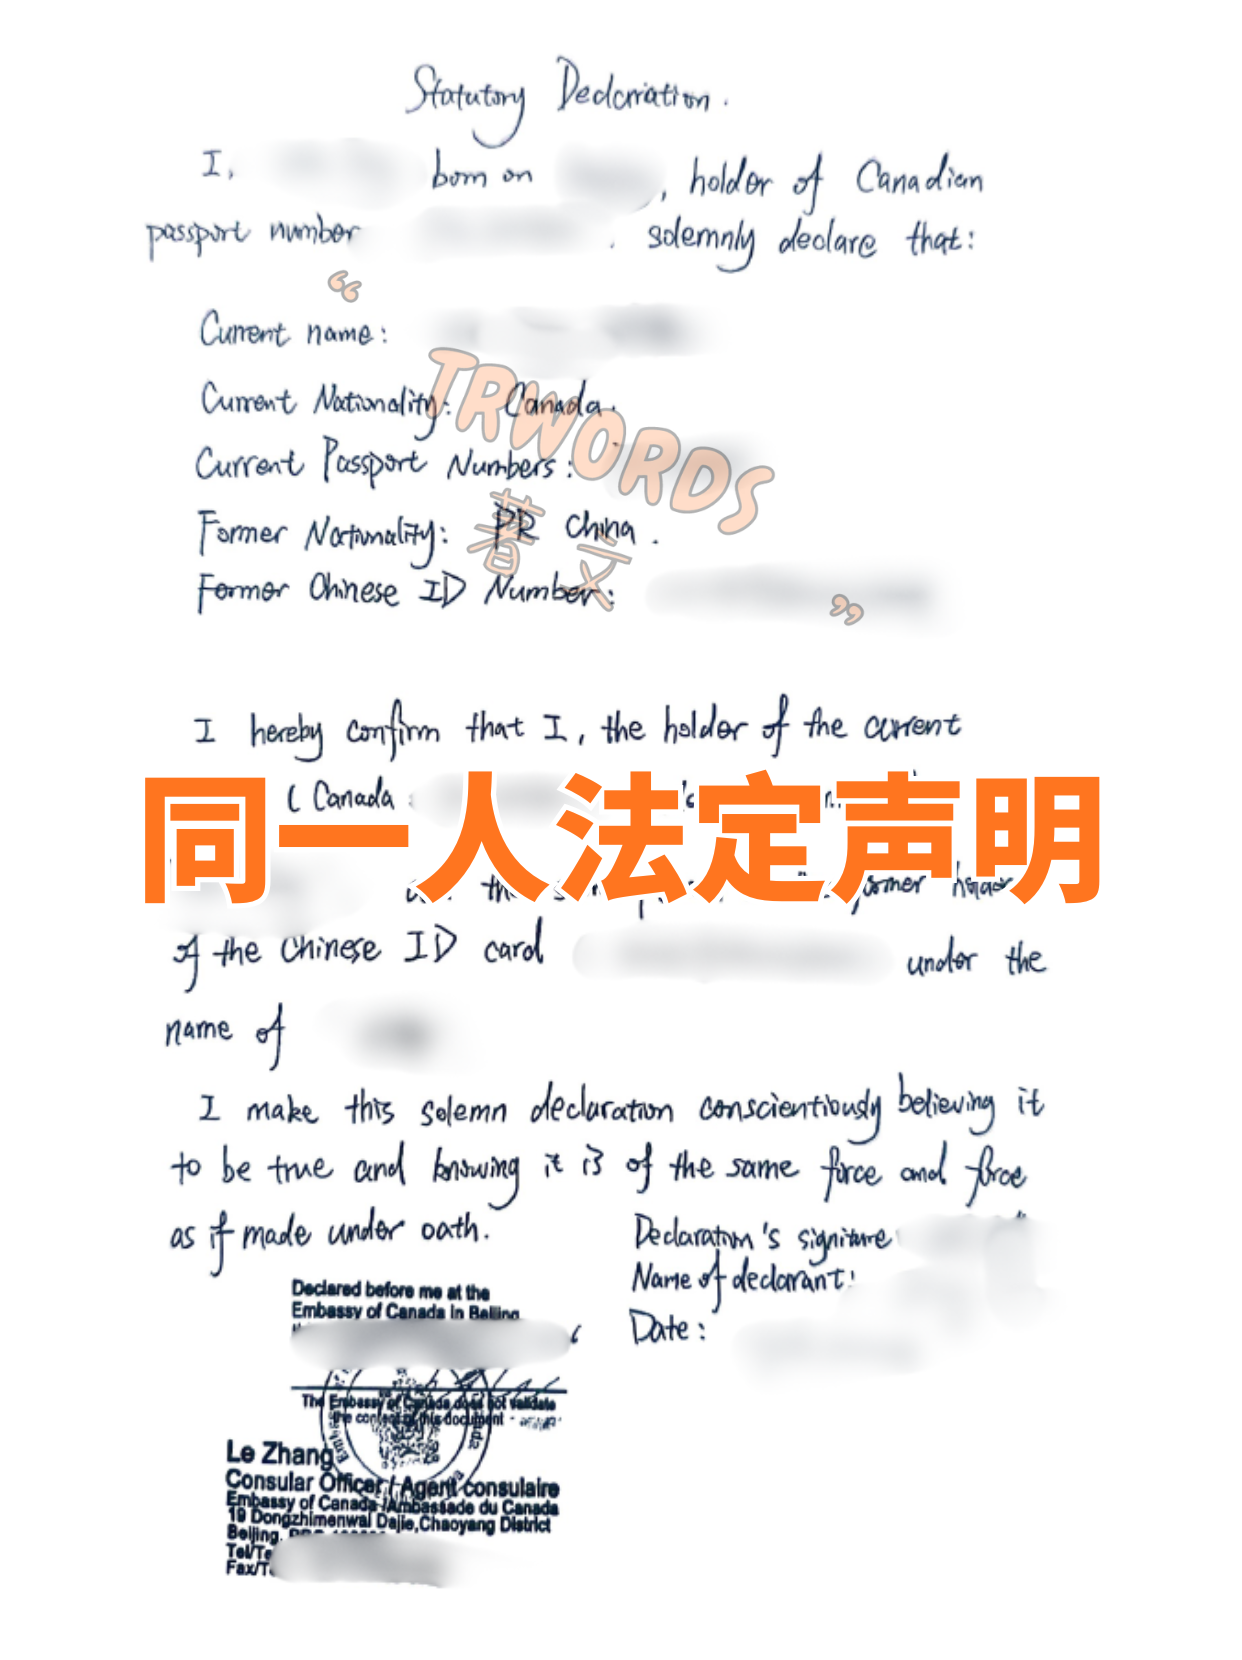 Statutory Declaration.
I, born on , holder of Canadian
passport number . solemnly declare that:
“
Current name:
Current Nationality: Canada.
TRWORDS
Current Passport Numbers:
Former Nationality: PR China.
著文
Former Chinese ID Number:
”
I hereby confirm that I, the holder of the current
(Canada
同一人法定声明
former holder
of the Chinese ID card under the
name of
I make this solemn declaration conscientiously believing it
to be true and knowing it is of the same force and force
as if made under oath.
Declaration's signiture
Name of declarant:
Date:
Declared before me at the
Embassy of Canada in Beijing
The Embassy of Canada does not validate
the content of this document
Le Zhang
Consular Officer / Agent consulaire
Embassy of Canada / Ambassade du Canada
19 Dongzhimenwai Dajie, Chaoyang District
Beijing,
Tel/Te
Fax/T